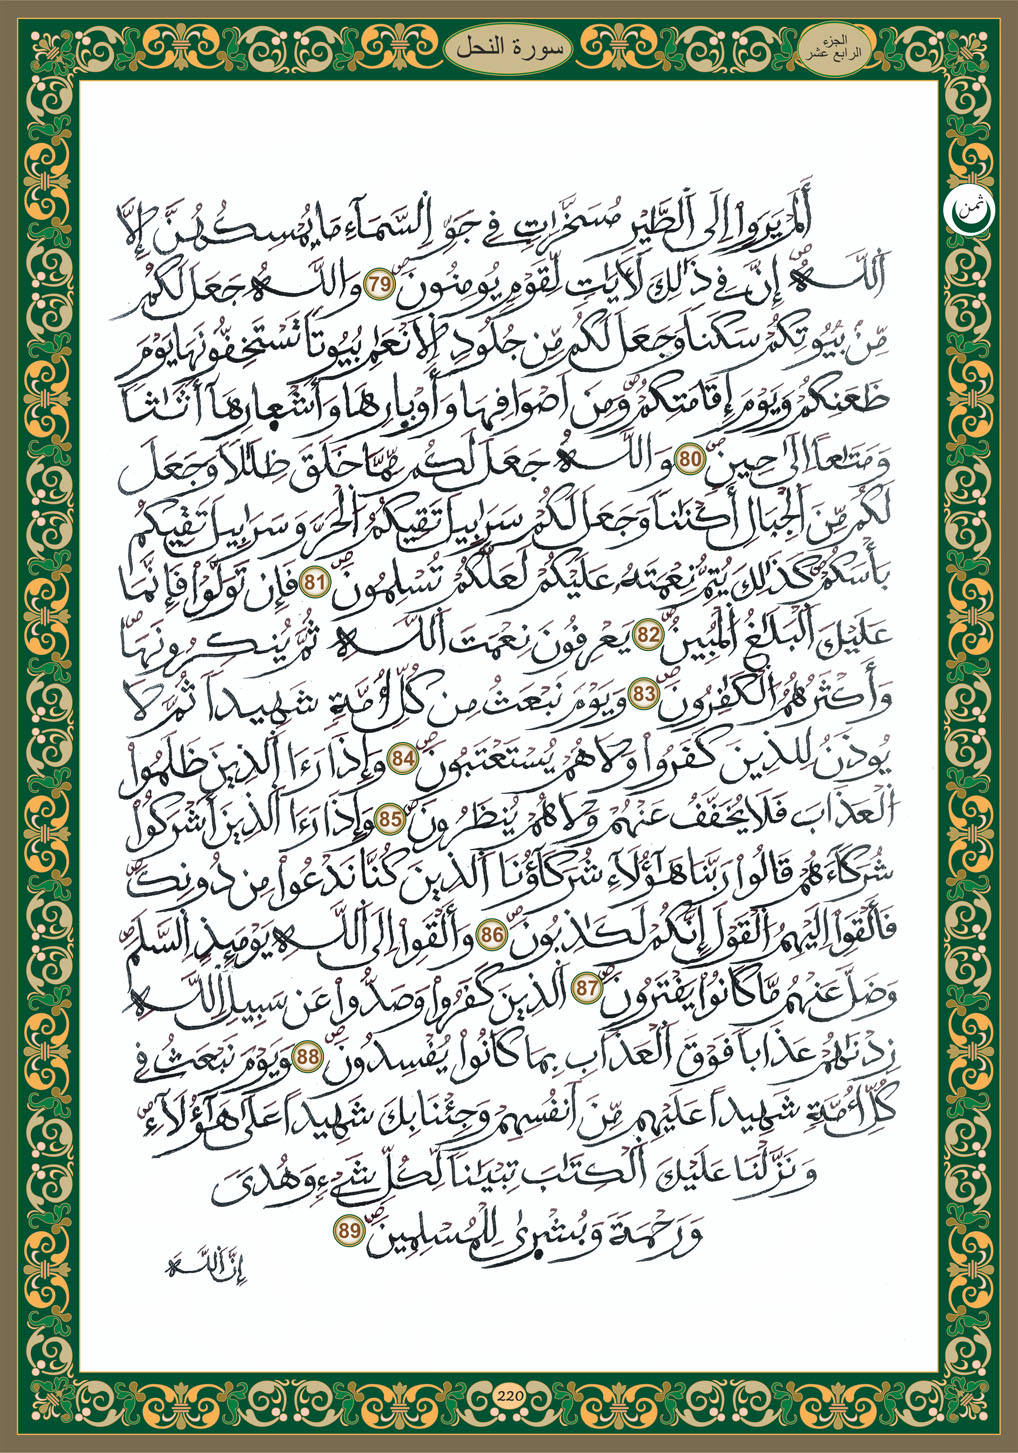 سورة النحل
الجزء
الرابع عشر
ثمن
أَلَمْ يَرَوِاْ اِلَى اَلطَّيْرِ مُسَخَّرَٰتٖ فِے جَوِّ اِ۬لسَّمَآءِ مَا يُمْسِكُهُنَّ إِلَّا
اَ۬للَّهُۖ إِنَّ فِے ذَٰلِكَ لَأٓيَٰتٖ لِّقَوْمٖ يُومِنُونَۖ 79 وَاللَّهُ جَعَلَ لَكُم
مِّنۢ بُيُوتِكُمْ سَكَناٗ وَجَعَلَ لَكُم مِّن جُلُودِ اِ۬لَانْعَٰمِ بُيُوتاٗ تَسْتَخِفُّونَهَا يَوْمَ
ظَعَنِكُمْ وَيَوْمَ إِقَامَتِكُمْۖ وَمِنَ اَصْوَافِهَا وَأَوْبِارِهَا وَأَشْعِارِهَآ أَثَٰثاٗ
وَمَتَٰعاً اِلَىٰ حِينٖۖ 80 وَاللَّهُ جَعَلَ لَكُم مِّمَّا خَلَقَ ظِلَٰلاٗ وَجَعَلَ
لَكُم مِّنَ اَ۬لْجِبَالِ أَكْنَٰناٗ وَجَعَلَ لَكُمْ سَرَٰبِيلَ تَقِيكُمُ اُ۬لْحَرَّ وَسَرَٰبِيلَ تَقِيكُم
بَأْسَكُمْۖ كَذَٰلِكَ يُتِمُّ نِعْمَتَهُۥ عَلَيْكُمْ لَعَلَّكُمْ تُسْلِمُونَۖ 81 فَإِن تَوَلَّوْاْ فَإِنَّمَا
عَلَيْكَ اَ۬لْبَلَٰغُ اُ۬لْمُبِينُۖ 82 يَعْرِفُونَ نِعْمَتَ اَ۬للَّهِ ثُمَّ يُنكِرُونَهَاۖ
وَأَكْثَرُهُمُ اُ۬لْكَٰفِرُونَۖ 83 وَيَوْمَ نَبْعَثُ مِن كُلِّ أُمَّةٖ شَهِيداٗ ثُمَّ لَا
يُوذَنُ لِلذِينَ كَفَرُواْ وَلَا هُمْ يُسْتَعْتَبُونَۖ 84 وَإِذَا رَءَا اَ۬لذِينَ ظَلَمُواْ
اُ۬لْعَذَابَ فَلَا يُخَفَّفُ عَنْهُمْ وَلَا هُمْ يُنظَرُونَۖ 85 وَإِذَا رَءَا اَ۬لذِينَ أَشْرَكُواْ
شُرَكَآءَهُمْ قَالُواْ رَبَّنَا هَٰٓؤُلَآءِ شُرَكَآؤُنَا اَ۬لذِينَ كُنَّا نَدْعُواْ مِن دُونِكَۖ
فَأَلْقَوِاْ اِلَيْهِمُ اُ۬لْقَوْلَ إِنَّكُمْ لَكَٰذِبُونَۖ 86 وَأَلْقَوِاْ اِلَى اَ۬للَّهِ يَوْمَئِذٍ اِ۬لسَّلَمَۖ
وَضَلَّ عَنْهُم مَّا كَانُواْ يَفْتَرُونَۖ 87 اَ۬لذِينَ كَفَرُواْ وَصَدُّواْ عَن سَبِيلِ اِ۬للَّهِ
زِدْنَٰهُمْ عَذَاباٗ فَوْقَ اَ۬لْعَذَابِ بِمَا كَانُواْ يُفْسِدُونَۖ 88 وَيَوْمَ نَبْعَثُ فِے
كُلِّ أُمَّةٖ شَهِيداً عَلَيْهِم مِّنَ اَنفُسِهِمْ وَجِئْنَا بِكَ شَهِيداً عَلَىٰ هَٰٓؤُلَآءِۖ
وَنَزَّلْنَا عَلَيْكَ اَ۬لْكِتَٰبَ تِبْيَٰناٗ لِّكُلِّ شَےْءٖ وَهُدىٗ
وَرَحْمَةٗ وَبُشْرِىٰ لِلْمُسْلِمِينَۖ 89
إِنَّ اَ۬للَّهَ
220